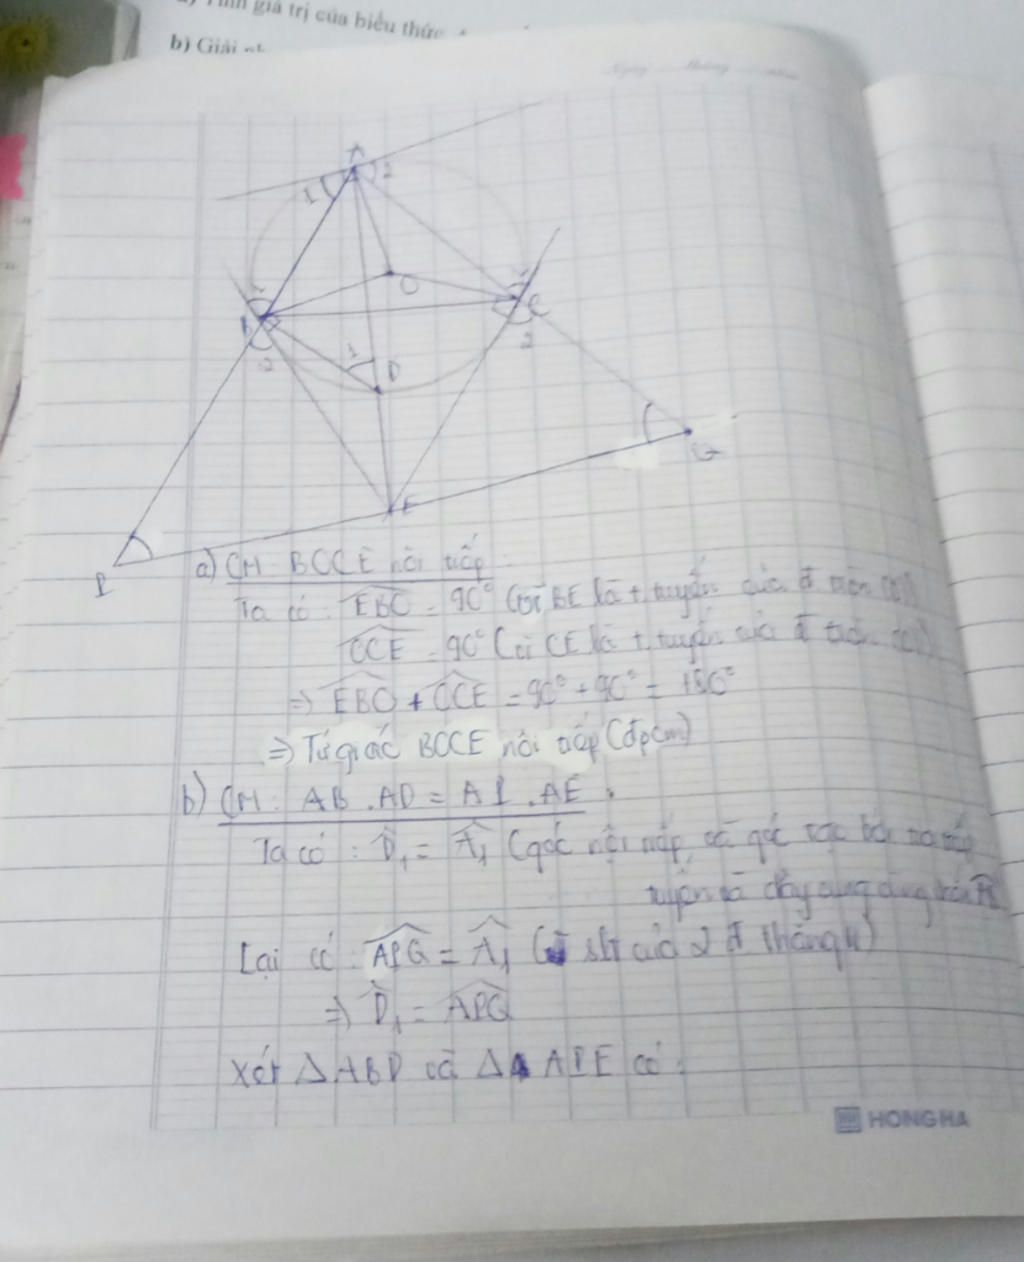 giá trị của biểu thức
b) Giải
A
1
2
O
B
C
2
2
1
D
E
G
P
a) CM: BOCE nội tiếp
Ta có: EBO = 90° (vì BE là t.tuyến của đ tròn (O))
OCE = 90° (vì CE là t.tuyến của đ tròn (O))
=> EBO + OCE = 90° + 90° = 180°
=> Tứ giác BOCE nội tiếp (đpcm)
b) CM: AB.AD = AP.AE.
Ta có: D₁ = A₁ (góc nội tiếp và góc tạo bởi tia tiếp
tuyến và dây cung cùng chắn
Lại có: APG = A₁ ( slt của 2 đ thẳng //)
=> D₁ = APG
Xét ΔABD và Δ APE có:
HONG HA